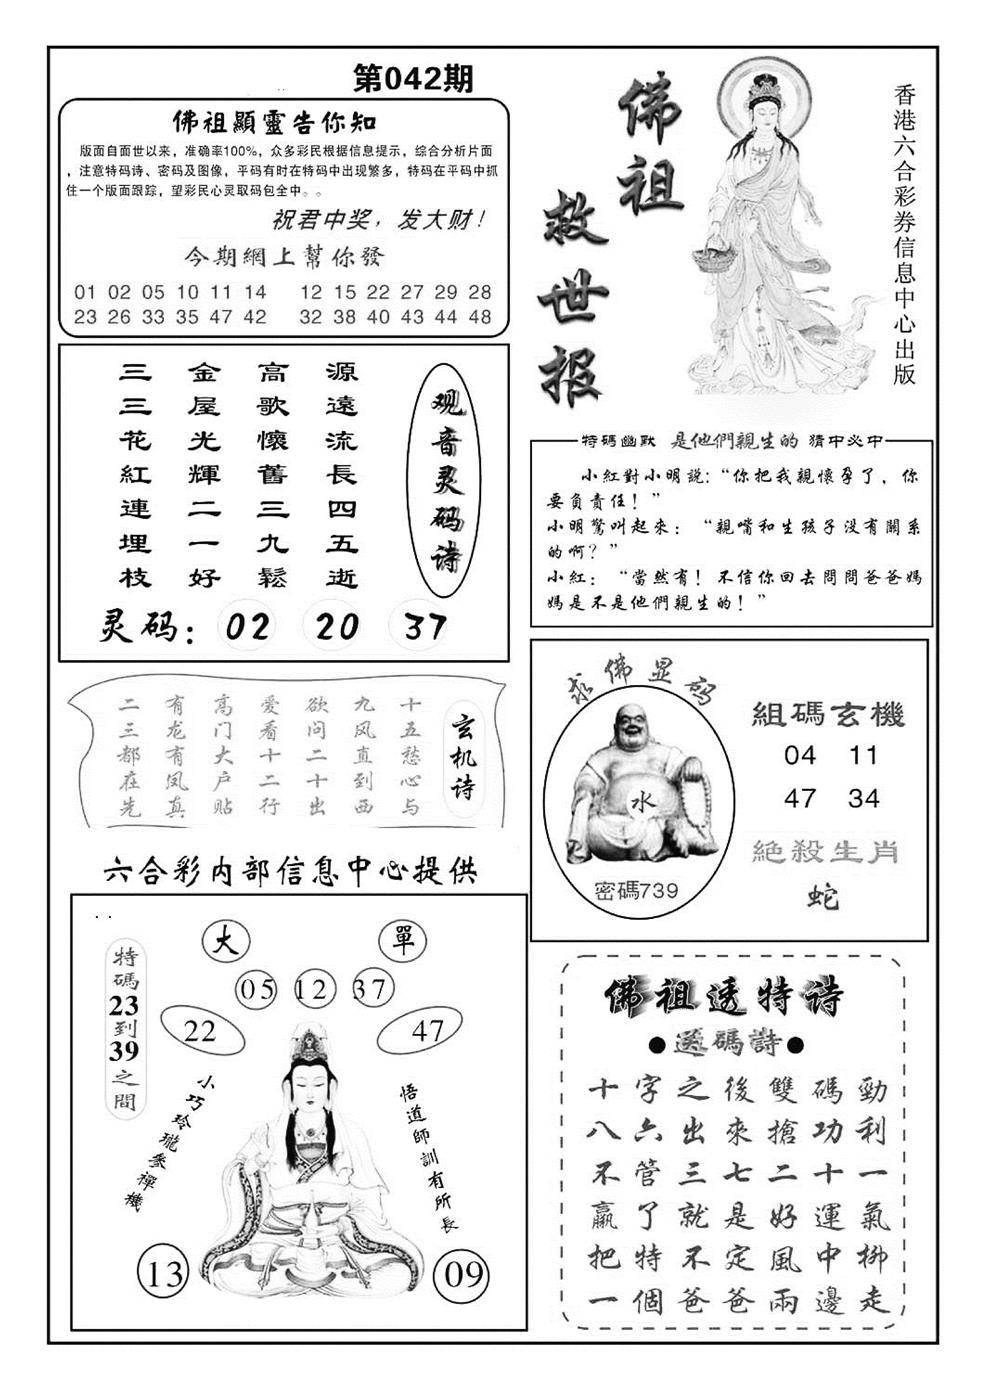 第042期
佛祖顯靈告你知
版面自面世以来，准确率100%，众多彩民根据信息提示，综合分析片面
，注意特码诗、密码及图像，平码有时在特码中出现繁多，特码在平码中抓
住一个版面跟踪，望彩民心灵取码包全中。。
祝君中奖，发大财！
今期網上幫你發
01 02 05 10 11 14 12 15 22 27 29 28
23 26 33 35 47 42 32 38 40 43 44 48
佛祖
救世报
香港六合彩券信息中心出版
观音灵码诗
三金高源
三屋歌遠
花光懷流
紅輝舊長
連二三四
埋一九五
枝好鬆逝
灵码：02 20 37
特碼幽默 是他們親生的 猜中必中
小紅對小明說：“你把我親懷孕了，你
要負責任！”
小明驚叫起來：“親嘴和生孩子没有關系
的啊？”
小紅：“當然有！不信你回去問問爸爸媽
媽是不是他們親生的！”
玄机诗
十五愁心与
九风直到西
欲问二十出
爱看十二行
高门大户贴
有龙有凤真
二三都在先
求佛显码
水
密碼739
組碼玄機
04 11
47 34
絕殺生肖
蛇
六合彩内部信息中心提供
特碼23到39之間
大 單
05 12 37
22 47
小巧玲瓏參禪機
悟道師訓有所長
13 09
佛祖透特诗
●送碼詩●
十字之後雙碼勁
八六出來搶功利
不管三七二十一
贏了就是好運氣
把特不定風中柳
一個爸爸兩邊走